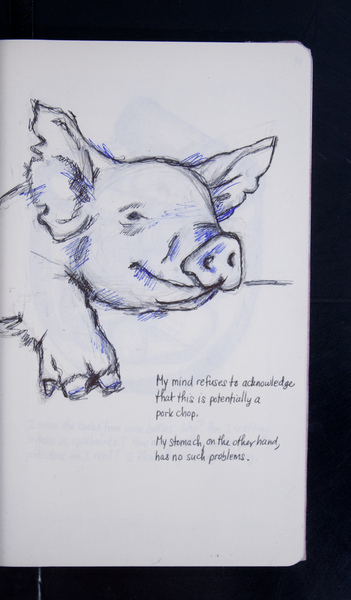 My mind refuses to acknowledge
that this is potentially a
pork chop.
My stomach, on the other hand,
has no such problems.